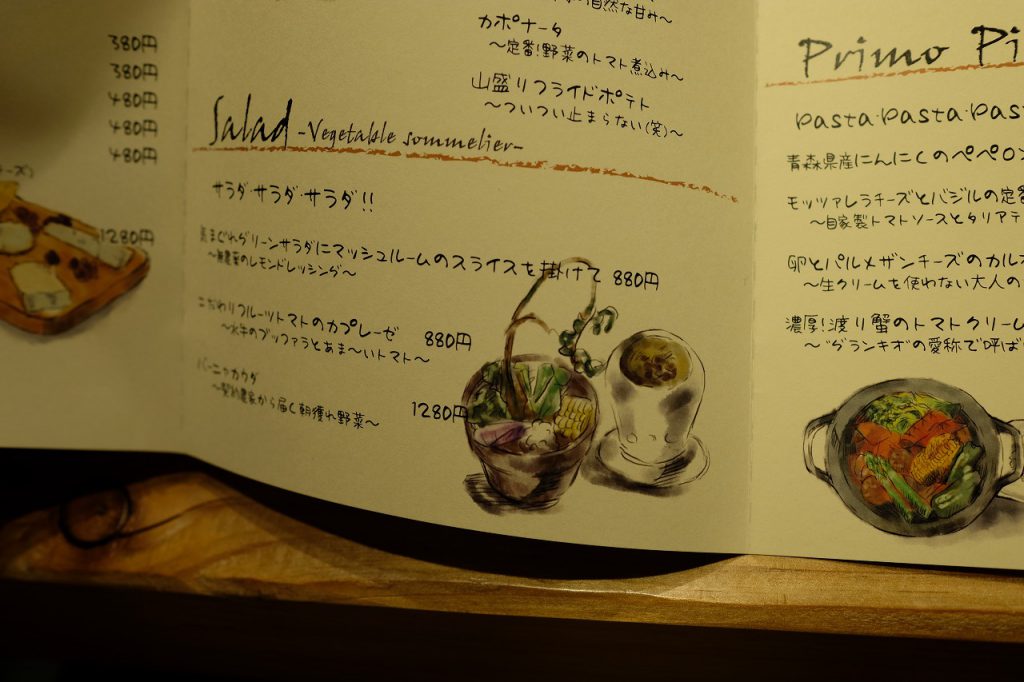 380円
380円
480円
480円
480円
ーズ)
1280円
の自然な甘み〜
カポナータ
〜定番!野菜のトマト煮込み〜
山盛りフライドポテト
〜ついつい止まらない(笑)〜
Salad -Vegetable sommelier-
サラダ・サラダ・サラダ!!
気まぐれグリーンサラダにマッシュルームのスライスを掛けて 880円
〜無農薬のレモンドレッシング〜
こだわりフルーツトマトのカプレーゼ 880円
〜水牛のブッファラとあま〜いトマト〜
バーニャカウダ
〜契約農家から届く朝獲れ野菜〜 1280円
Primo Pi
pasta・pasta・pas
青森県産にんにくのペペロン
モッツァレラチーズとバジルの定番
〜自家製トマトソースとタリアテ
卵とパルメザンチーズのカルボ
〜生クリームを使わない大人の
濃厚!渡り蟹のトマトクリーム
〜"グランキオ"の愛称で呼ば